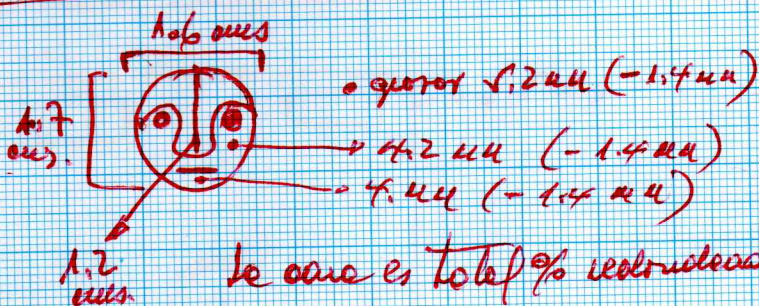 1.6 cms
• grosor 5.2 mm (-1.4 mm)
1.7
cms.
4.2 mm (-1.4 mm)
4. mm (-1.4 mm)
1.2
cms.
La cara es total % redondeada